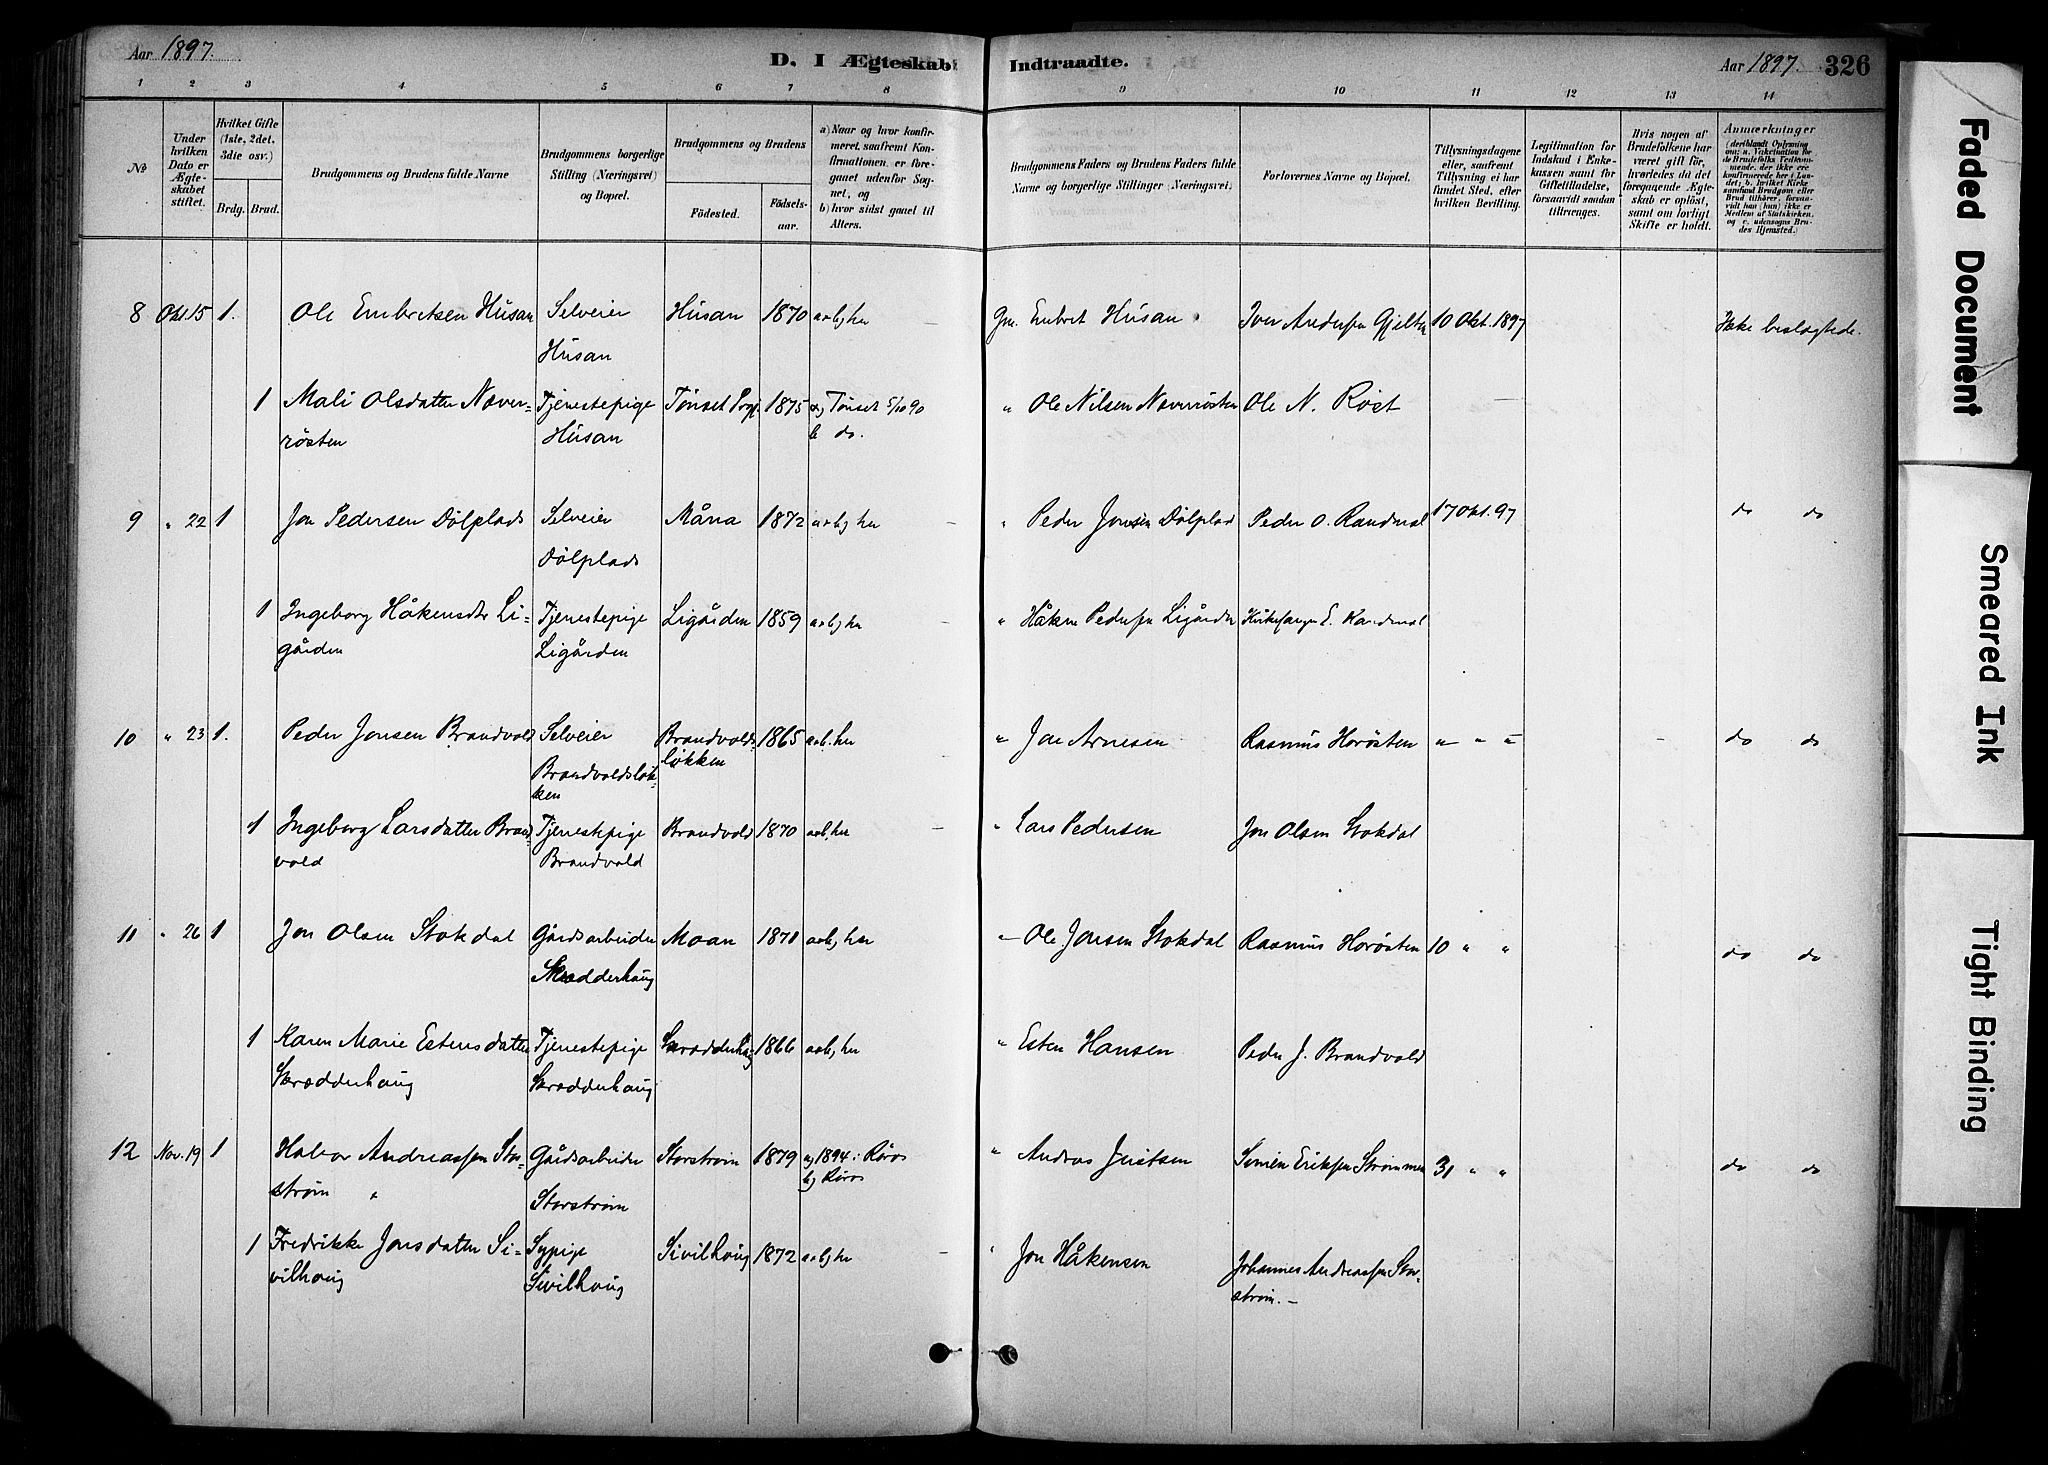 Aar 1897.
D. I Ægteskab
Indtraadte.
Aar 1897.
326
1 2 3 4 5 6 7 8 9 10 11 12 13 14
№
Under hvilken Dato er Ægteskabet stiftet.
Hvilket Gifte (1ste, 2det, 3die osv.)
Brdg. Brud.
Brudgommens og Brudens fulde Navne
Brudgommens borgerlige Stilling (Næringsvei) og Bopæl.
Brudgommens og Brudens
Födested.
Födselsaar.
a) Naar og hvor konfirmeret, saafremt Konfirmationen er foregaaet udenfor Sognet, og
b) hvor sidst gaaet til Alters.
Brudgommens Faders og Brudens Faders fulde Navne og borgerlige Stillinger (Næringsvei)
Forlovernes Navne og Bopæl.
Tillysningsdagene eller, saafremt Tillysning ei har fundet Sted, efter hvilken Bevilling.
Legitimation for Indskud i Enkekassen samt for Giftetilladelse, forsaavidt saadan tiltrænges.
Hvis nogen af Brudefolkene har været gift för, hvorledes da det foregaaende Ægteskab er oplöst, samt om lovligt Skifte er holdt.
Anmærkninger
8 Okt. 15 1. Ole Embretsen Husan Selveier Husan 1870 a+b, her Gm. Embret Husan Iver Andersen Gjelten 10 Okt. 1897 Ikke beslægtede.
Husan
1 Mali Olsdatter Næver- Tjenestepige Tönset Prgj. 1875 a, Tönset 5/10 90 " Ole Nilsen Næverrösten Ole N. Röst
rösten Husan b do.
9 " 22 1 Jon Pedersen Dölplads Selveier Måna 1872 a+b, her " Peder Jonsen Dölplad Peder O. Randmæl 17 Okt. 97 do do
Dölplads
1 Ingeborg Håkensdtr Li- Tjenestepige Ligården 1859 a+b, her " Håken Pedersen Ligården Kirkesanger E. Randmæl
gården Ligården
10 " 23 1. Peder Jonsen Brandvold Selveier Brandvolds- 1865 a+b. her " Jon Arnesen Rasmus Horösten " " " do do
Brandvoldslök- lökken
ken
1 Ingeborg Larsdatter Brand- Tjenestepige Brandvold 1870 a+b, her " Lars Pedersen Jon Olsen Stokdal
vold Brandvold
11 " 26 1 Jon Olsen Stokdal Gårdsarbeider Moan 1871 a+b, her " Ole Jonsen Stokdal Rasmus Horösten 10 " " do do
Skrædderhaug
1 Karen Marie Estensdatter Tjenestepige Skrædderhaug 1866 a+b, her " Esten Hansen Peder J. Brandvold
Skrædderhaug Skrædderhaug
12 Nov. 19 1 Halvor Andreassen Stor- Gårdsarbeider Storström 1879 a, 1894 i Röros " Andreas Justsen Simen Eriksen Strömmen 31 " " do do
ström " Storström b, Röros
1 Fredrikke Jonsdatter Si- Sypige Sivilhaug 1872 a+b, her " Jon Håkensen Johannes Andreassen Stor-
vilhaug Sivilhaug ström. —
Faded Document
Smeared Ink
Tight Binding